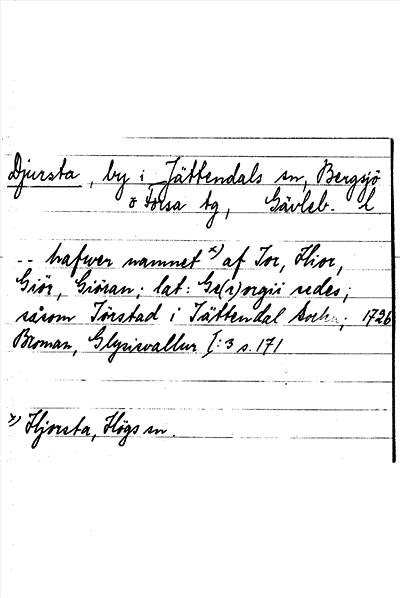 Djursta, by i Jättendals sn, Bergsjö
o Forsa tg, Gävleb. l
-- hafwer namnet x) af Jor, Hior,
Giör, Giöran; lat: Ge(r)orgii sedes;
såsom Jörstad i Jättendal Sochn; 1726
Broman, Glysisvallur I:3 s. 171
x) Hjorsta, Högs sn.